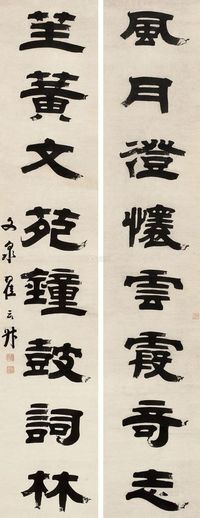 風月澄懷雲霞奇志
笙簧文苑鐘鼓詞林
文泉翟云升